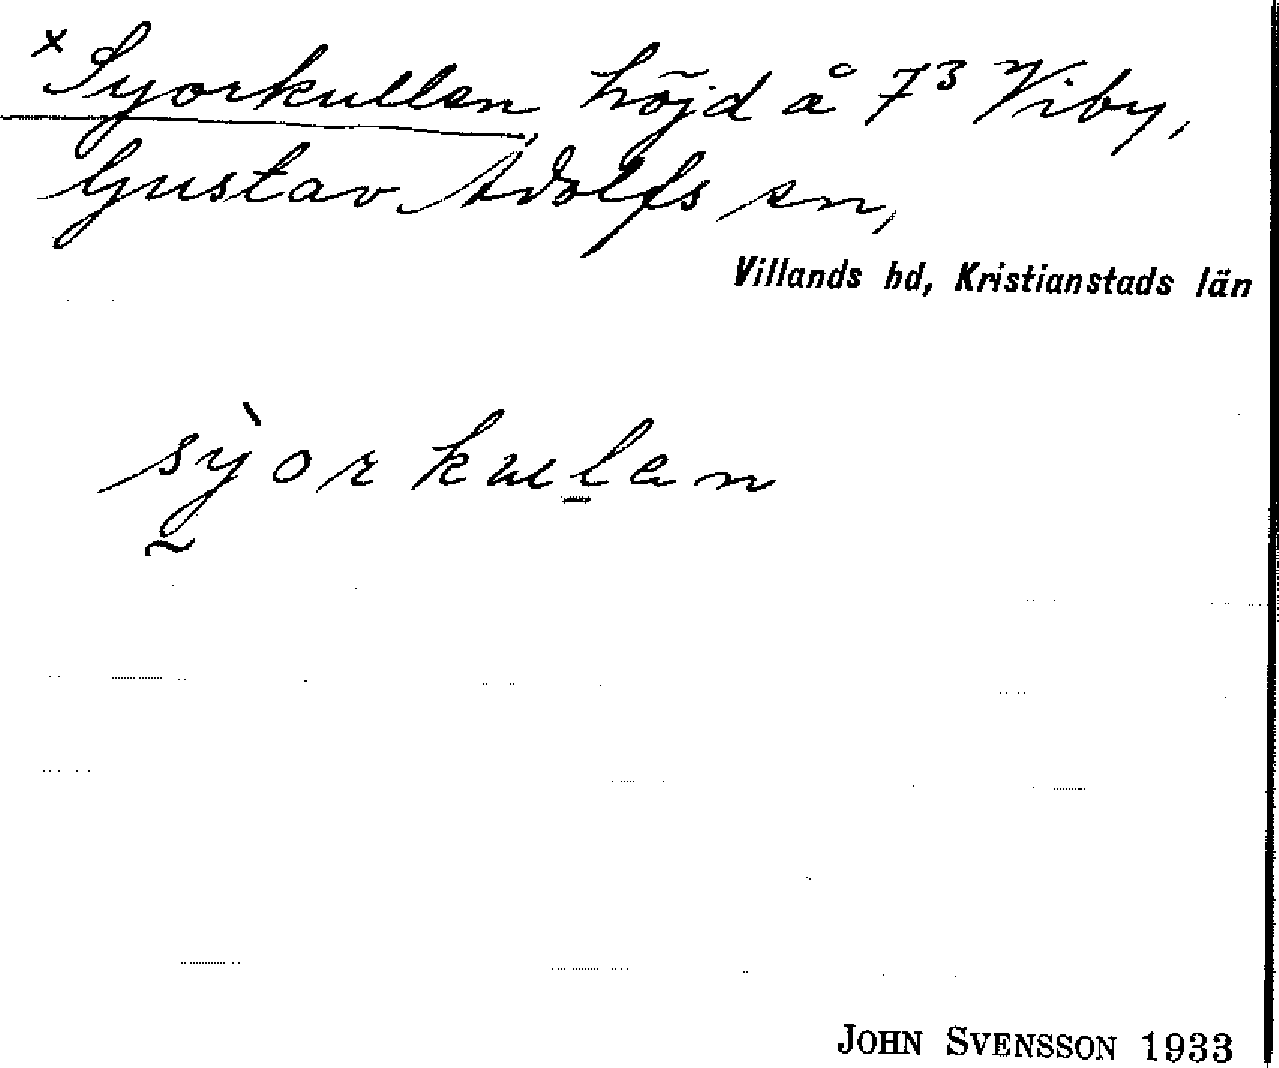 × Syorkullen, höjd å 7³ Viby,
Gustav Adolfs sn,
Villands hd, Kristianstads län
sỳorkulen
JOHN SVENSSON 1933